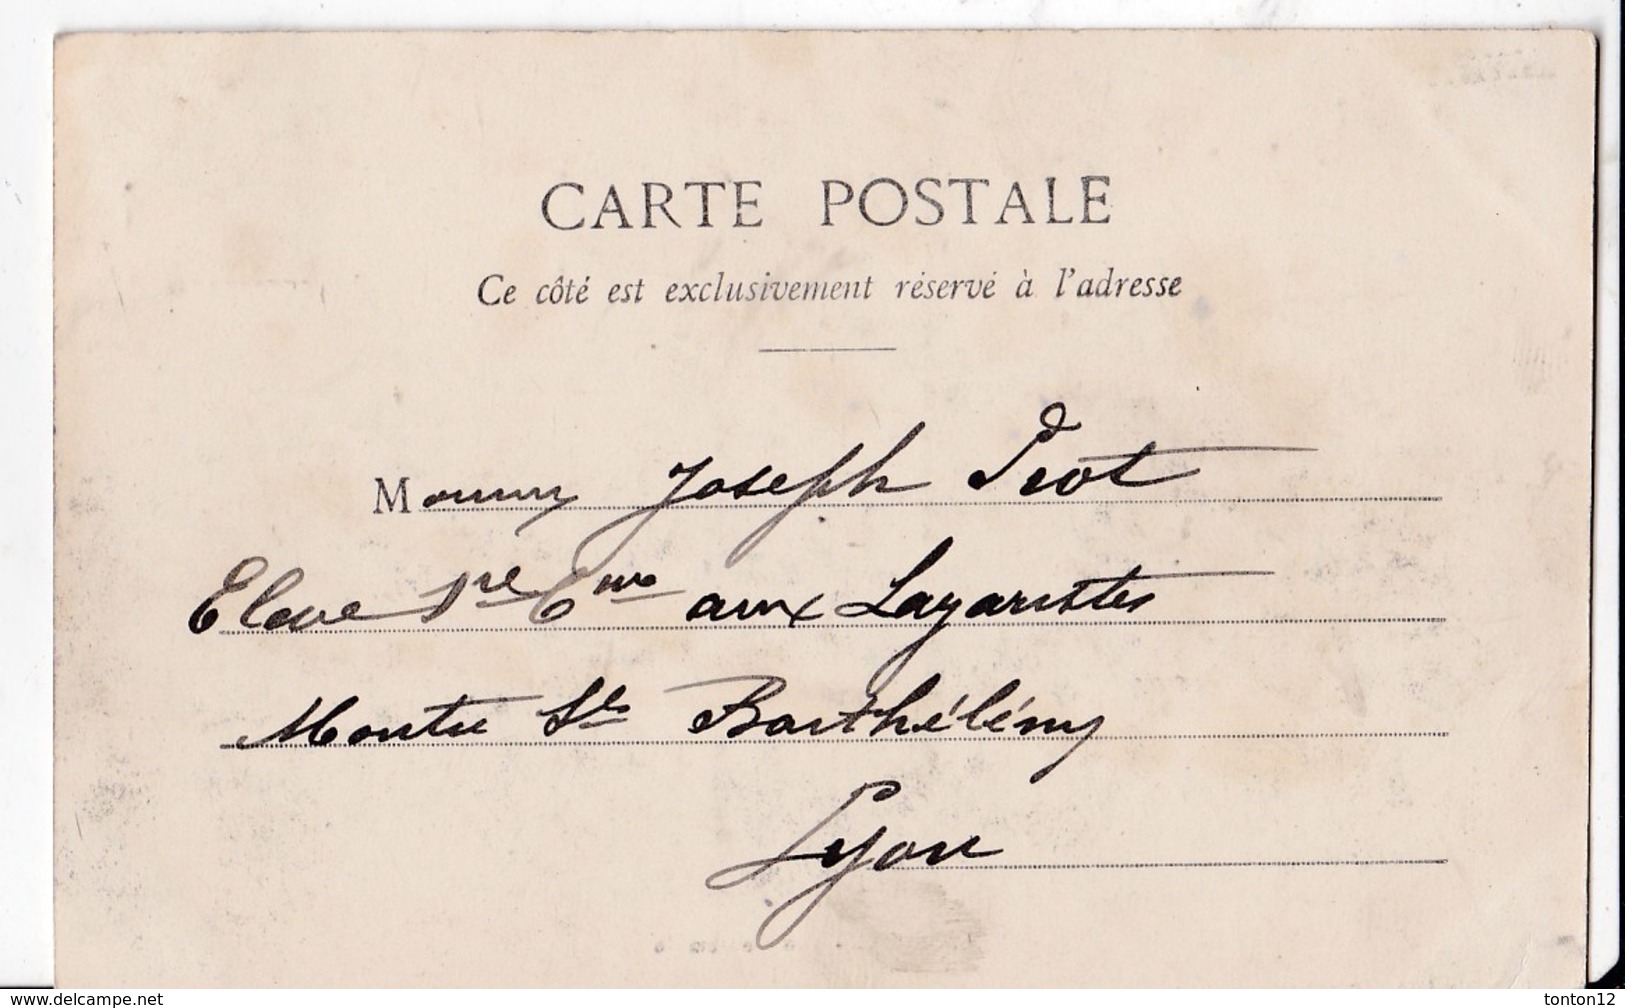 CARTE POSTALE
Ce côté est exclusivement réservé à l'adresse
Monsieur Joseph
Eleve 1re aux Lazaristes
Montée St Barthélémy
Lyon
www.delcampe.net
tonton12